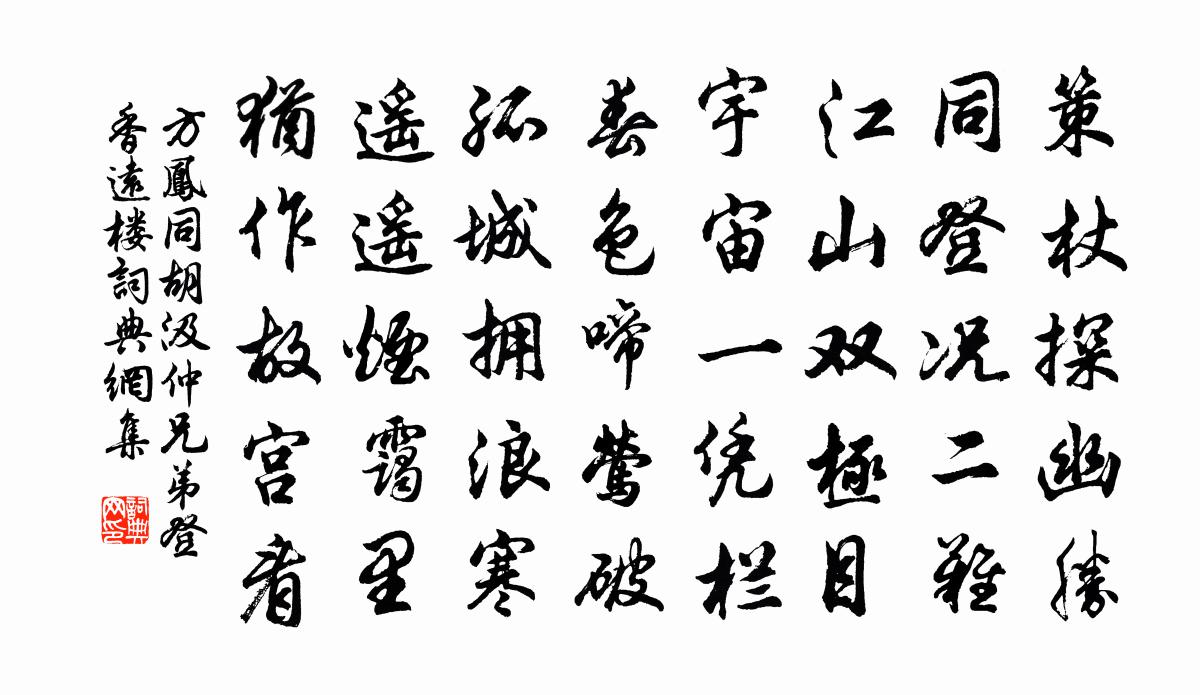 策杖探幽胜
同登况二难
江山双極目
宇宙一凭栏
春色啼莺破
孤城拥浪寒
遥遥煙靄里
猶作故宫看
方鳳同胡汲仲兄弟登
香遠楼詞典網集
詞典
网印